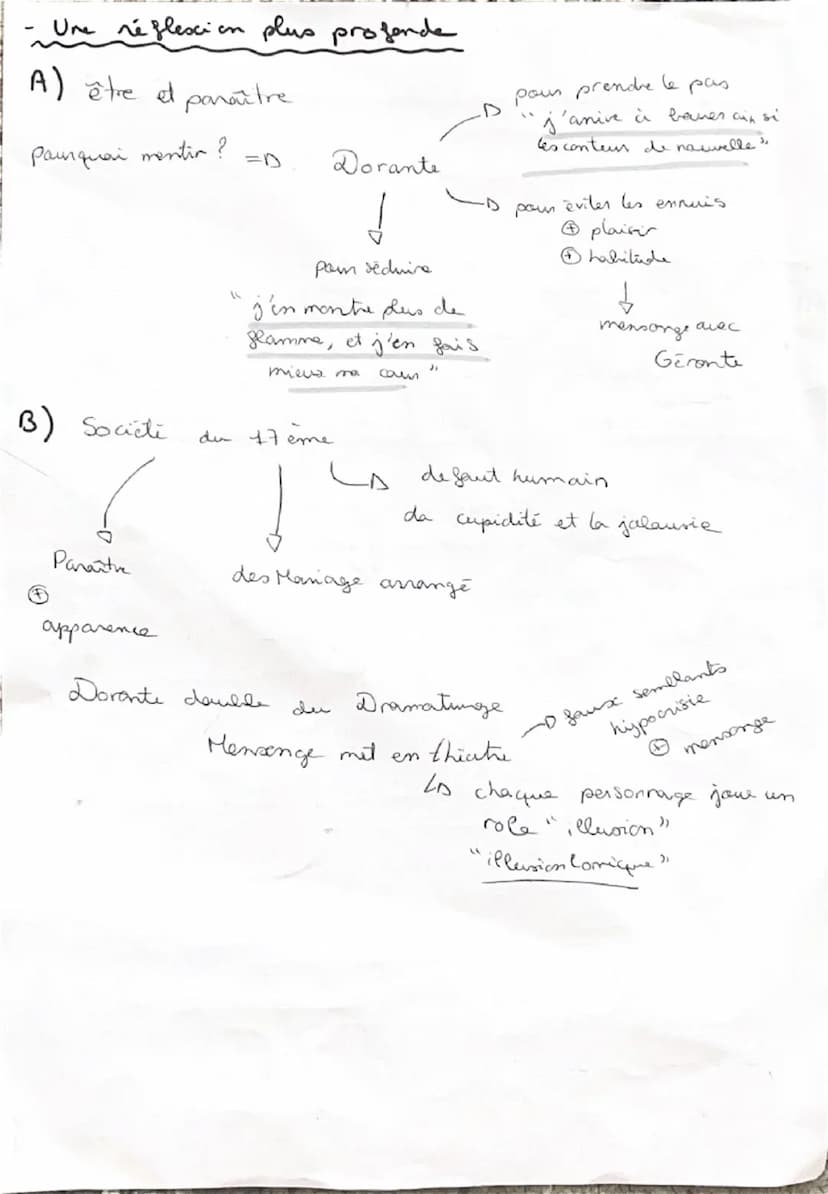 - Une réflexion plus profonde
A) être et paraître
pourquoi mentir ? => Dorante
pour prendre le pas
"j'arrive à braver ainsi
les conteurs de nouvelle"
pour éviter les ennuis
+ plaisir
+ habitude
mensonge avec
Géronte
pour séduire
"j'en montre plus de
flamme, et j'en fais
mieux ma cour"
B) Société du 17ème
defaut humain
da cupidité et la jalousie
Paraître
+
apparence
des Mariage arrangé
Dorante double du Dramaturge
faux semblants
hypocrisie
+ mensonge
Mensonge met en théatre
chaque personnage joue un
role "illusion"
"illusion Comique"